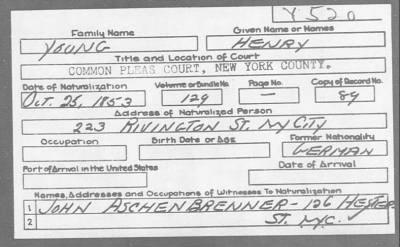 Y520
Family Name Given Name or Names
YOUNG HENRY
Title and Location of Court
COMMON PLEAS COURT, NEW YORK COUNTY.
Date of Naturalization Volume or Bundle No. Page No. Copy of Record No.
OCT. 25, 1853 129 — 89
Address of Naturalized Person
223 RIVINGTON ST. NY CITY
Occupation Birth Date or Age Former Nationality
GERMAN
Port of Arrival in the United States Date of Arrival
Names, Addresses and Occupations of Witnesses To Naturalization
1 JOHN ASCHENBRENNER - 126 HESTER
2 ST. NYC.